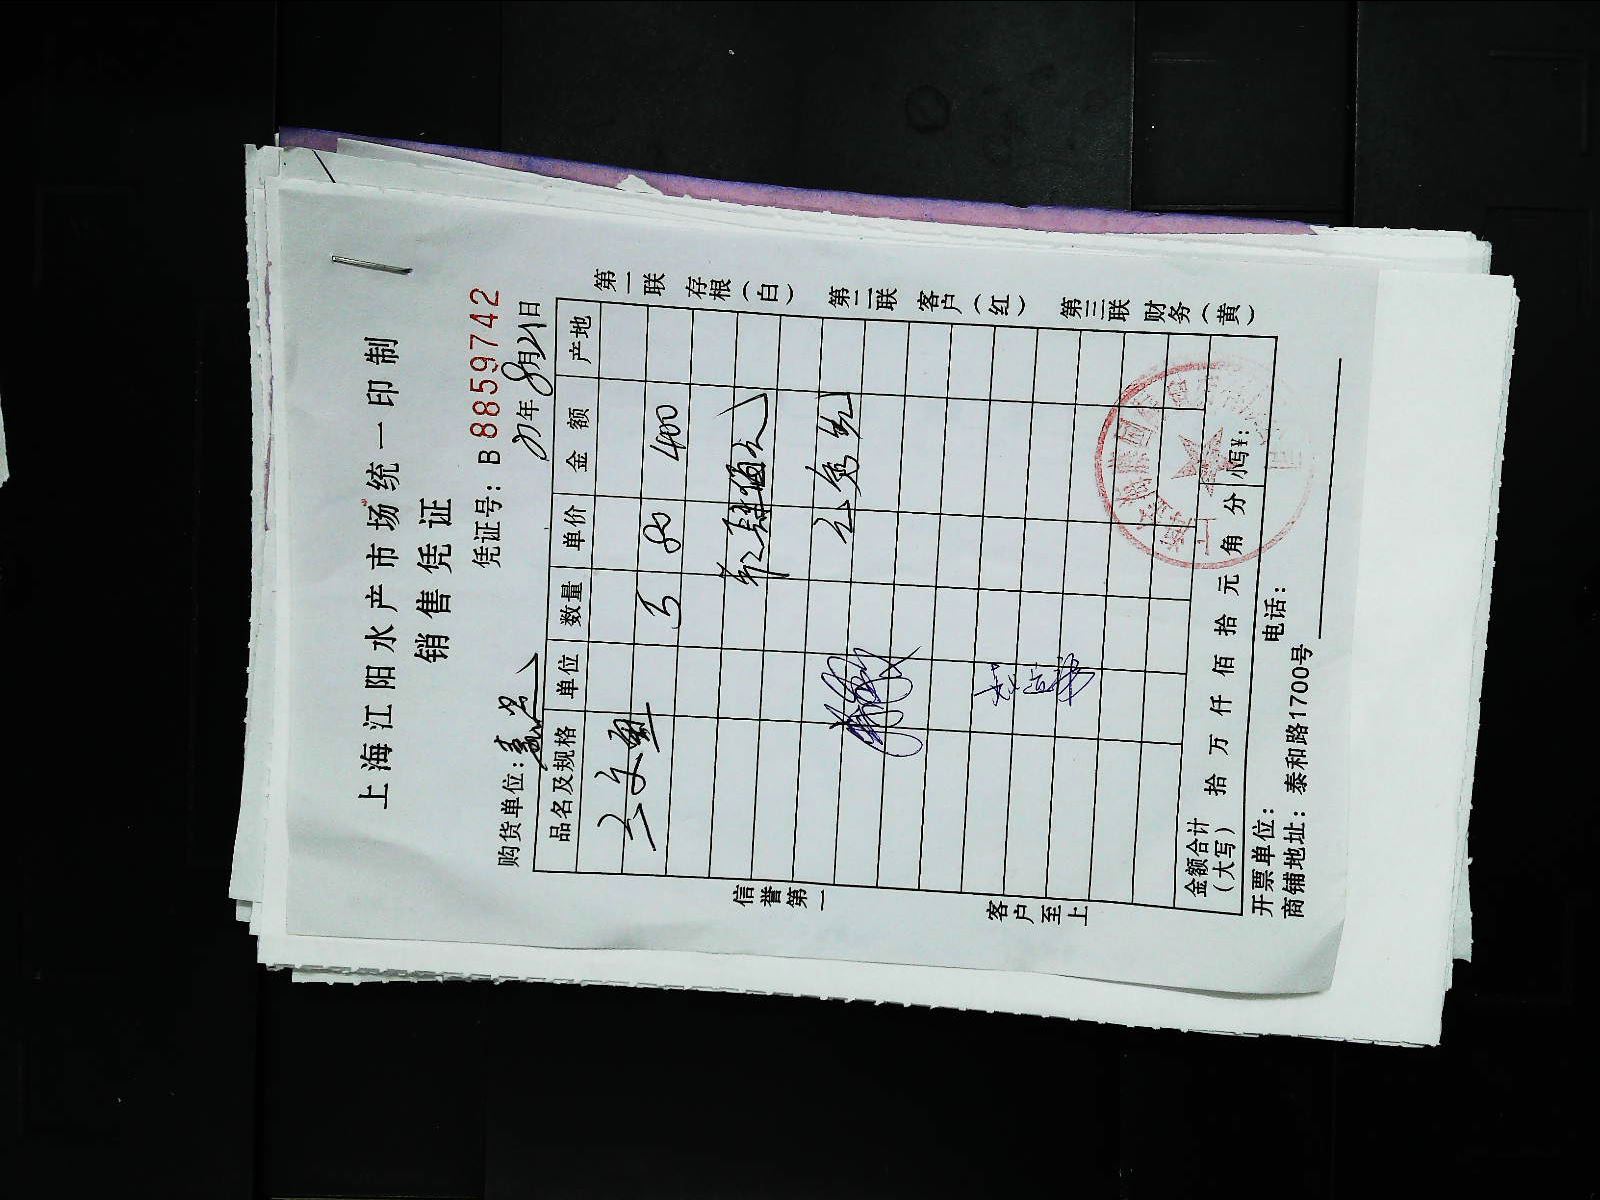 上海江阳水产市场统一印制
销售凭证
凭证号：B 8859742
购货单位：
21年8月21日
品名及规格 单位 数量 单价 金额 产地
三文鱼
5 80 400
信誉第一
客户至上
第一联 存根（白）
第二联 客户（红）
第三联 财务（黄）
金额合计（大写） 拾 万 仟 佰 拾 元 角 分 小写¥：
开票单位： 电话：
商铺地址：泰和路1700号